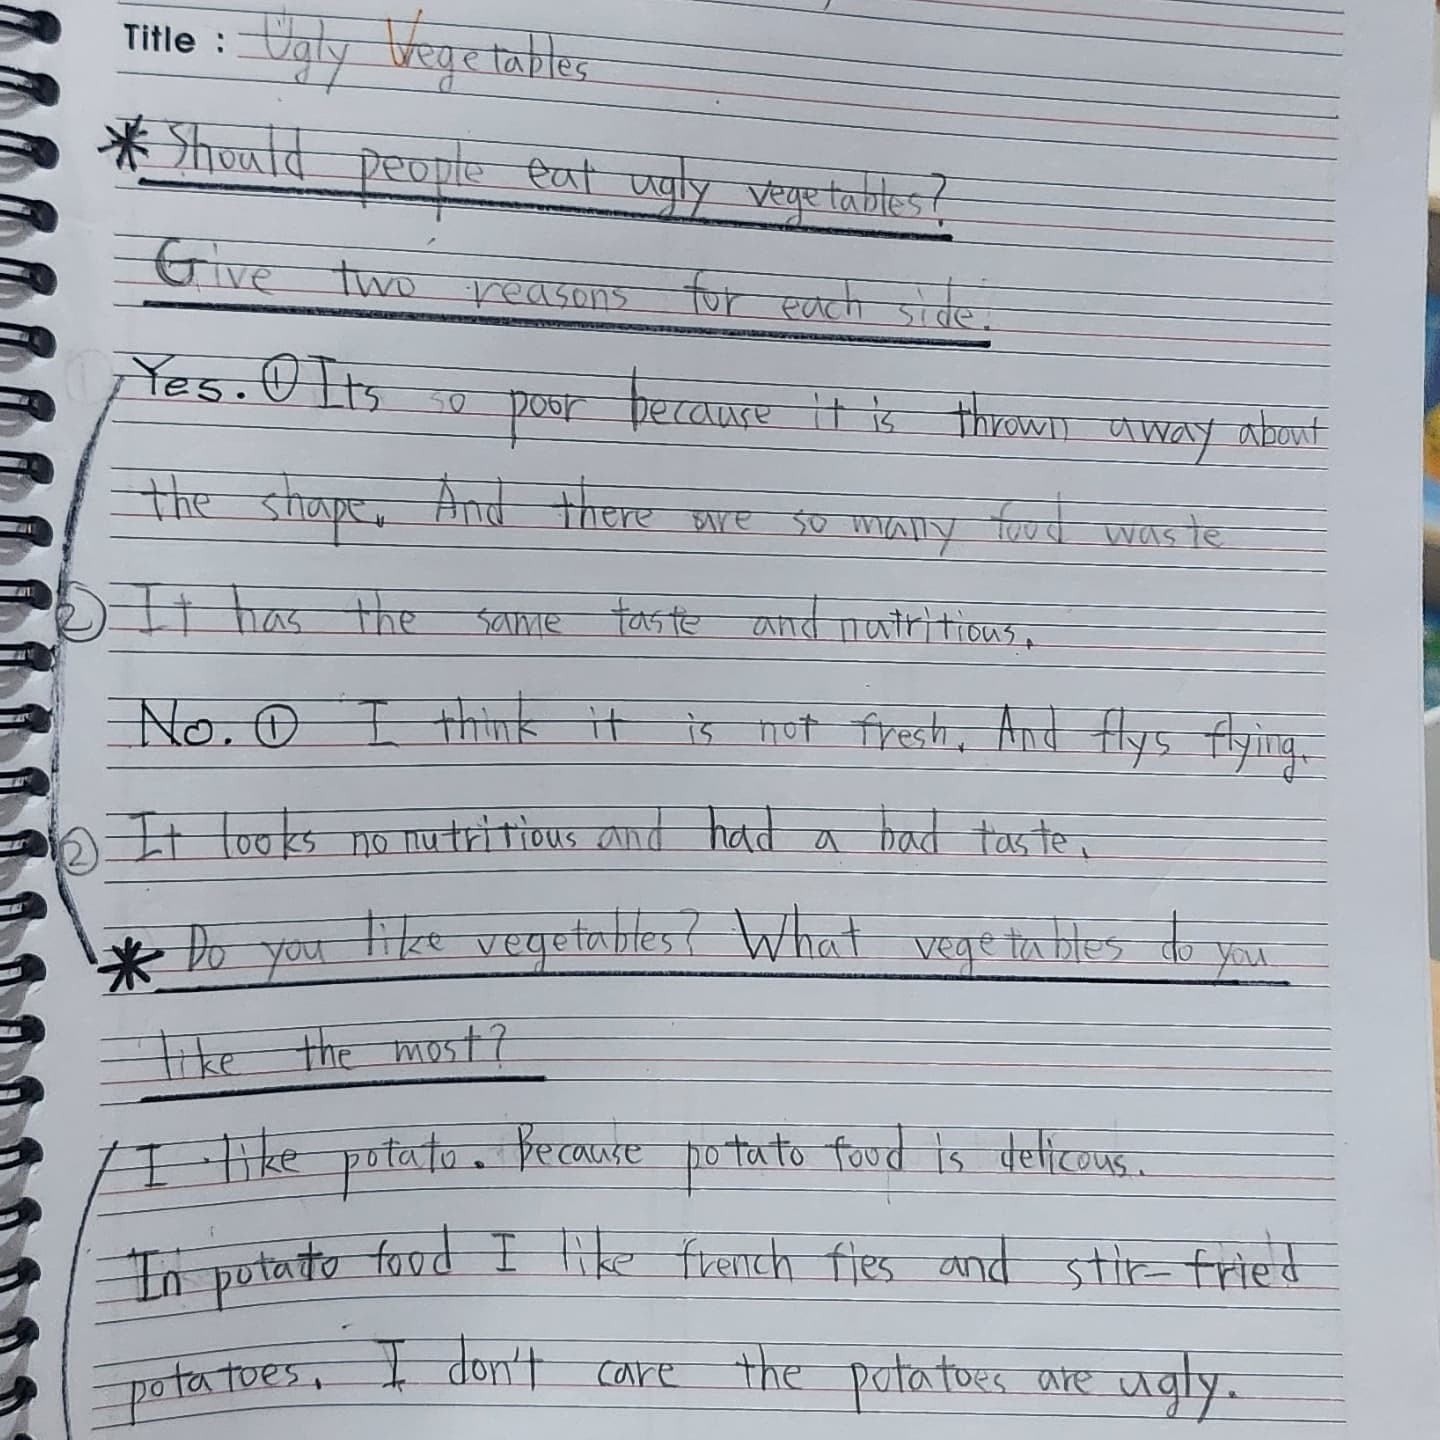 Title : Ugly Vegetables
* Should people eat ugly vegetables?
Give two reasons for each side.
Yes. ① Its so poor because it is thrown away about
the shape. And there are so many food waste
② It has the same taste and nutritious.
No. ① I think it is not fresh. And flys flying.
② It looks no nutritious and had a bad taste.
* Do you like vegetables? What vegetables do you
like the most?
I like potato. Because potato food is delicous.
In potato food I like french fies and stir-fried
potatoes. I don't care the potatoes are ugly.